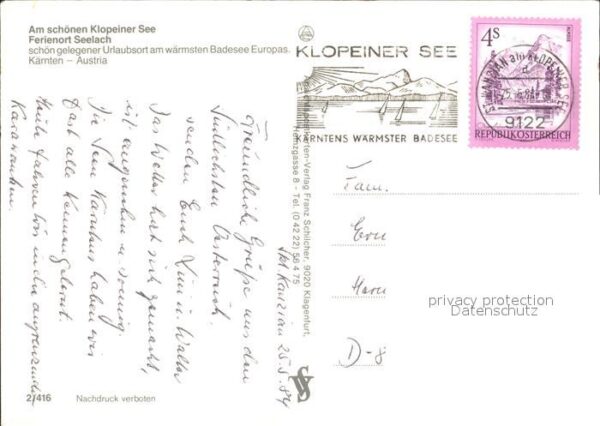 Am schönen Klopeiner See
Ferienort Seelach
schön gelegener Urlaubsort am wärmsten Badesee Europas.
Kärnten – Austria
KLOPEINER SEE
KÄRNTENS WÄRMSTER BADESEE
4S
REPUBLIK ÖSTERREICH
ST. KANZIAN am KLOPEINER SEE
9122
St. Kanzian 25.8.84
Freundliche Grüße aus dem
südlichsten Österreich
senden Euch Linni u. Walter
Das Wetter hat sich gemacht,
ist angenehm u. sonnig.
Die Seen Kärntens haben wir
fast alle kennengelernt.
Heute fahren wir in die angrenzenden
Karawanken.
Karten-Verlag Franz Schilcher, 9020 Klagenfurt,
gasse 8 - Tel. (0 42 22) 56 4 75
Fam.
D-8
privacy protection
Datenschutz
2/416
Nachdruck verboten